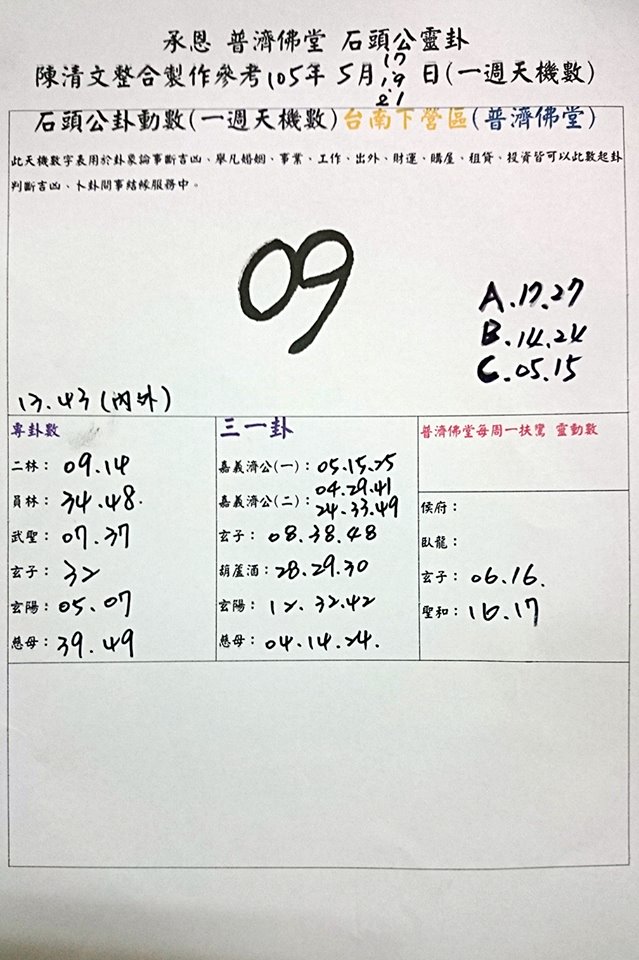 承恩 普濟佛堂 石頭公靈卦
陳清文整合製作參考105年 5月 17 19 21 日(一週天機數)
石頭公卦動數(一週天機數)台南下營區(普濟佛堂)
此天機數字表用於卦象論事斷吉凶、舉凡婚姻、事業、工作、出外、財運、購屋、租賃、投資皆可以此數起卦
判斷吉凶、卜卦問事結緣服務中。
09
A.17.27
B.14.24
C.05.15
13.43(內外)
專卦數
二林:09.14
員林:34.48.
武聖:07.37
玄子:32
玄陽:05.07
慈母:39.49
三一卦
嘉義濟公(一):05.15.25
嘉義濟公(二):04.29.41
24.33.49
玄子:08.38.48
葫蘆酒:28.29.30
玄陽:12.32.42
慈母:04.14.24.
普濟佛堂每周一扶鸞 靈動數
侯府:
臥龍:
玄子:06.16.
聖和:16.17